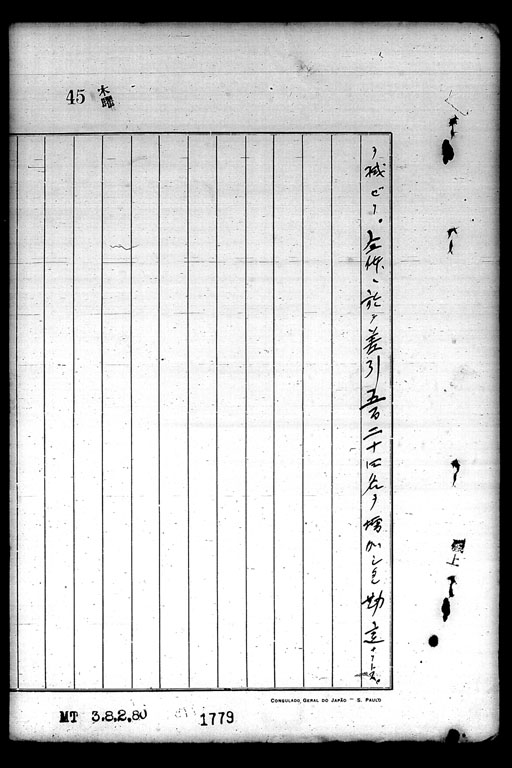 45
ヲ減ゼリ。全体ニ於テ差引五百二十四名ヲ増加シタル勘定ナリトス。
上
CONSULADO GERAL DO JAPÃO — S. PAULO
MT 3.8.2.80
1779